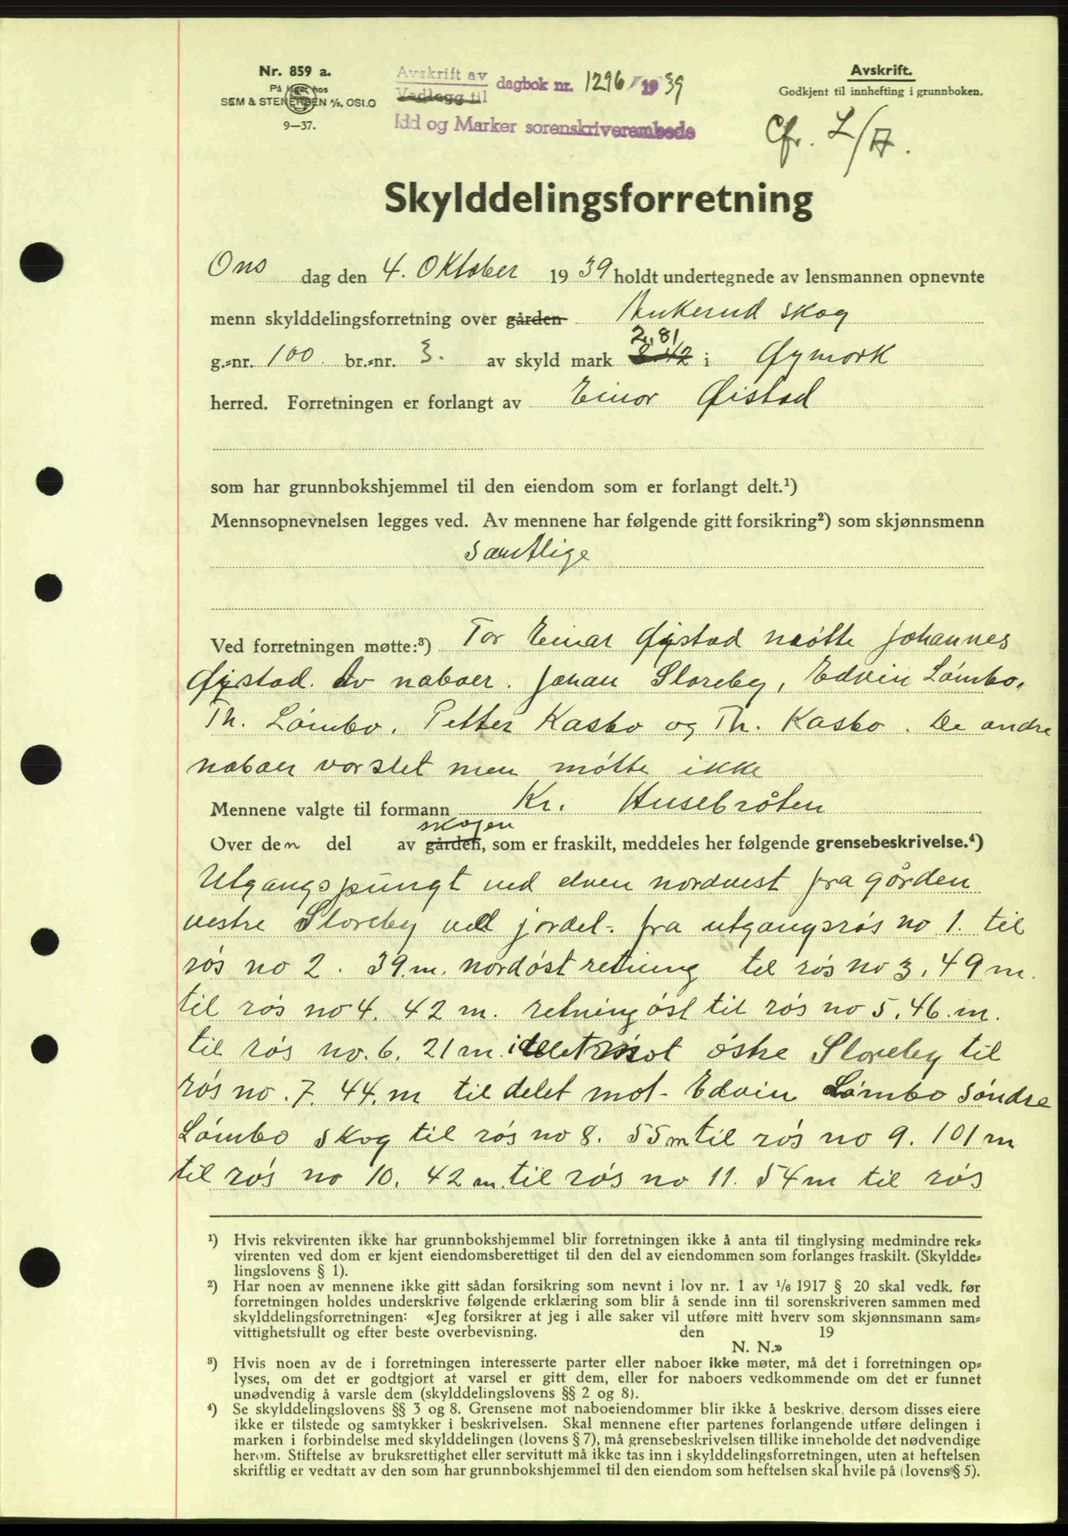 Nr. 859 a.
På lager hos
SEM & STENERSEN A/S, OSLO
9—37.
Avskrift av
Vedlegg til
dagbok nr. 1296 / 1939
Idd og Marker sorenskriverembede
Avskrift.
Godkjent til innhefting i grunnboken.
Cfr. L/A.
Skylddelingsforretning
Ons dag den 4. Oktober 1939 holdt undertegnede av lensmannen opnevnte
menn skylddelingsforretning over gården Ankerud skog
g.-nr. 100 br.-nr. 3. av skyld mark 2,81 i Øymark
herred. Forretningen er forlangt av Einar Øistad
som har grunnbokshjemmel til den eiendom som er forlangt delt.¹)
Mennsopnevnelsen legges ved. Av mennene har følgende gitt forsikring²) som skjønnsmenn
samtlige
Ved forretningen møtte:³) For Einar Øistad møtte Johannes
Øistad. Av naboer. Johan Sloreby, Edvin Lømbo,
Th. Lømbo, Petter Kasbo og Th. Kasbo. De andre
naboer varslet men møtte ikke
Mennene valgte til formann Kr. Husebråten
Over den del av gården skogen, som er fraskilt, meddeles her følgende grensebeskrivelse.⁴)
Utgangspungt ved elven nordvest fra gården
vestre Sloreby ved jordet. fra utgangsrøs no 1. til
røs no 2. 39 m. nordøst retning til røs no 3. 49 m.
til røs no 4. 42 m. retning øst til røs no 5. 46. m.
til røs no. 6. 21 m. i delet mot østre Sloreby til
røs no. 7. 44. m til delet mot Edvin Lømbo søndre
Lømbo skog til røs no 8. 55 m til røs no 9. 101 m
til røs no 10. 42 m. til røs no 11. 54 m til røs
¹) Hvis rekvirenten ikke har grunnbokshjemmel blir forretningen ikke å anta til tinglysing medmindre rek-
virenten ved dom er kjent eiendomsberettiget til den del av eiendommen som forlanges fraskilt. (Skyldde-
lingslovens § 1).
²) Har noen av mennene ikke gitt sådan forsikring som nevnt i lov nr. 1 av 1/6 1917 § 20 skal vedk. før
forretningen holdes underskrive følgende erklæring som blir å sende inn til sorenskriveren sammen med
skylddelingsforretningen: «Jeg forsikrer at jeg i alle saker vil utføre mitt hverv som skjønnsmann sam-
vittighetsfullt og efter beste overbevisning. den 19
N. N.»
³) Hvis noen av de i forretningen interesserte parter eller naboer ikke møter, må det i forretningen op-
lyses, om det er godtgjort at varsel er gitt dem, eller for naboers vedkommende om det er funnet
unødvendig å varsle dem (skylddelingslovens §§ 2 og 8).
⁴) Se skylddelingslovens §§ 3 og 8. Grensene mot naboeiendommer blir ikke å beskrive, dersom disses eiere
ikke er tilstede og samtykker i beskrivelsen. Skal mennene efter partenes forlangende utføre delingen i
marken i forbindelse med skylddelingen (lovens § 7), må grensebeskrivelsen tillike inneholde det nødvendige
herom. Stiftelse av bruksrettighet eller servitutt må ikke tas inn i skylddelingsforretningen, uten at heftelsen
skriftlig er vedtatt av den som har grunnbokshjemmel til den eiendom som heftelsen skal hvile på (lovens § 5).